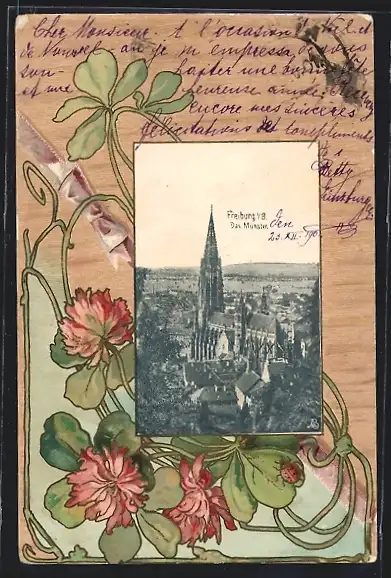 Cher Monsieur. A l'occasion de Noël et
de Nouvel an je m'empresse de vous
souhaiter une bonne
et une heureuse année. Recevez
encore mes sincères
félicitations et compliments
Betty
Freiburg i/B.
Das Münster.
den
23. XII.